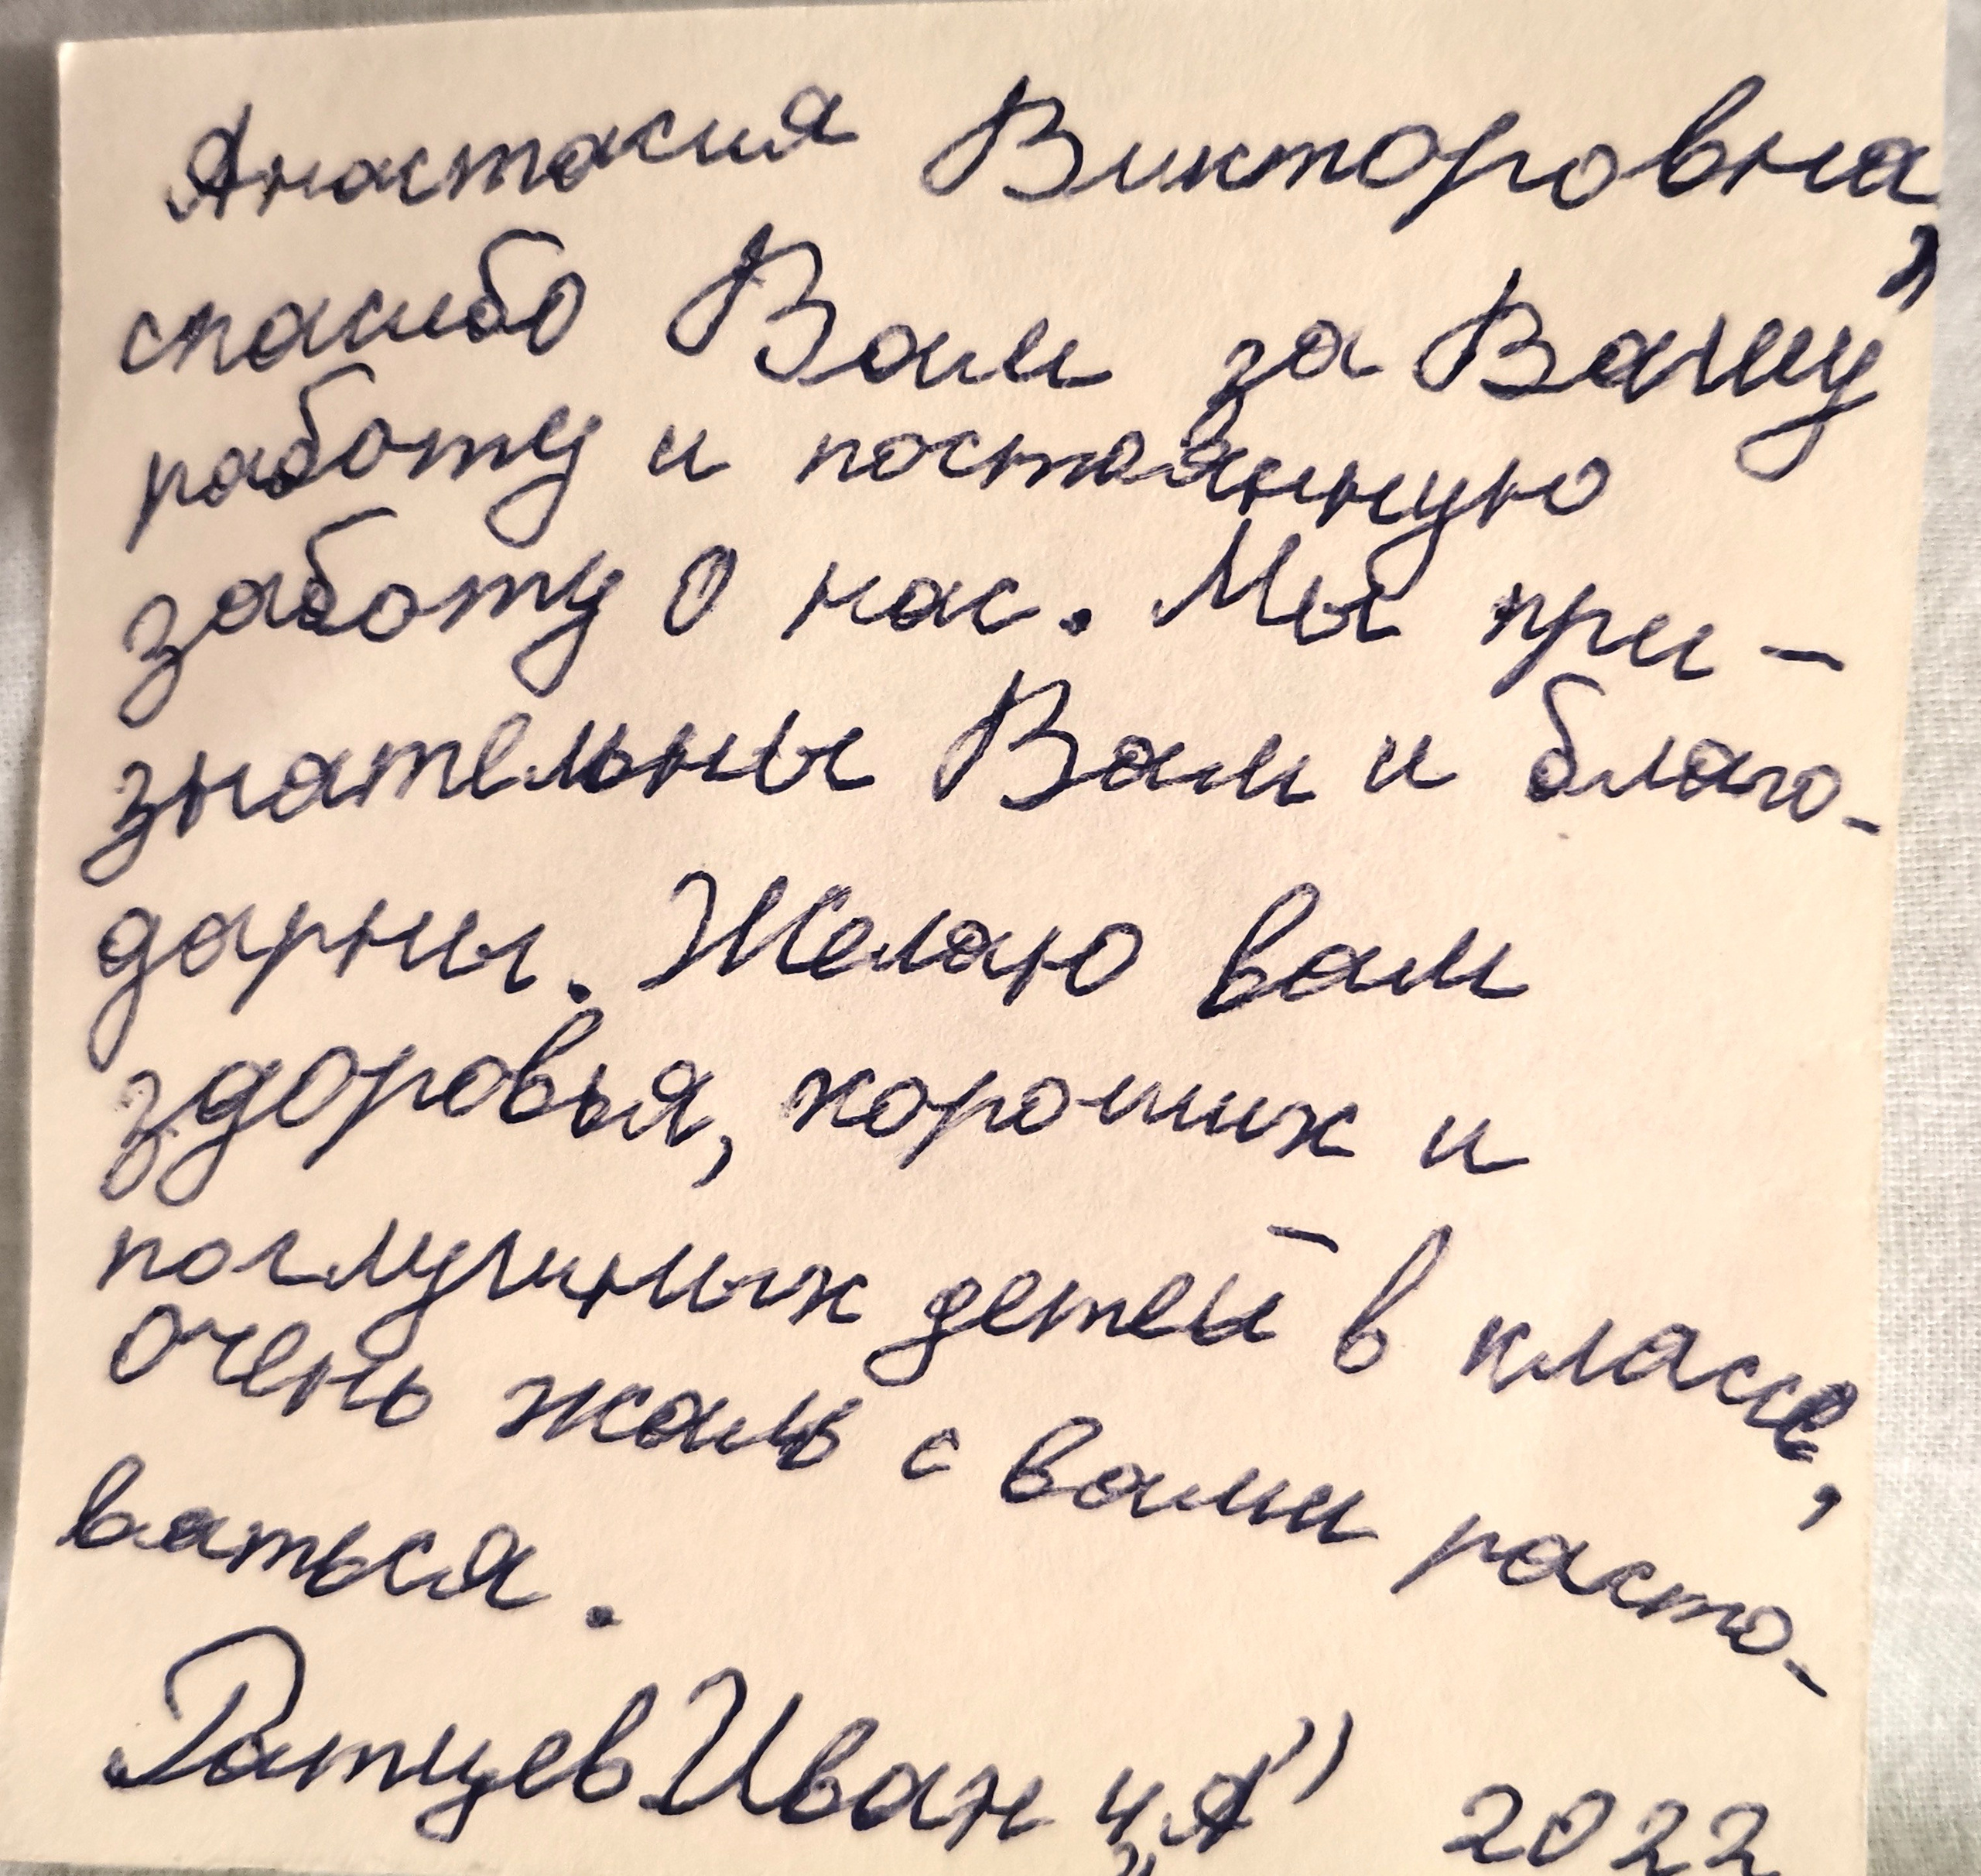 Анастасия Викторовна,
спасибо Вам за Вашу
работу и постоянную
заботу о нас. Мы при-
знательны Вам и благо-
дарны. Желаю вам
здоровья, хороших и
послушных детей в классе,
очень жаль с вами расто-
ваться.
Ратцев Иван 4 „А” 2022